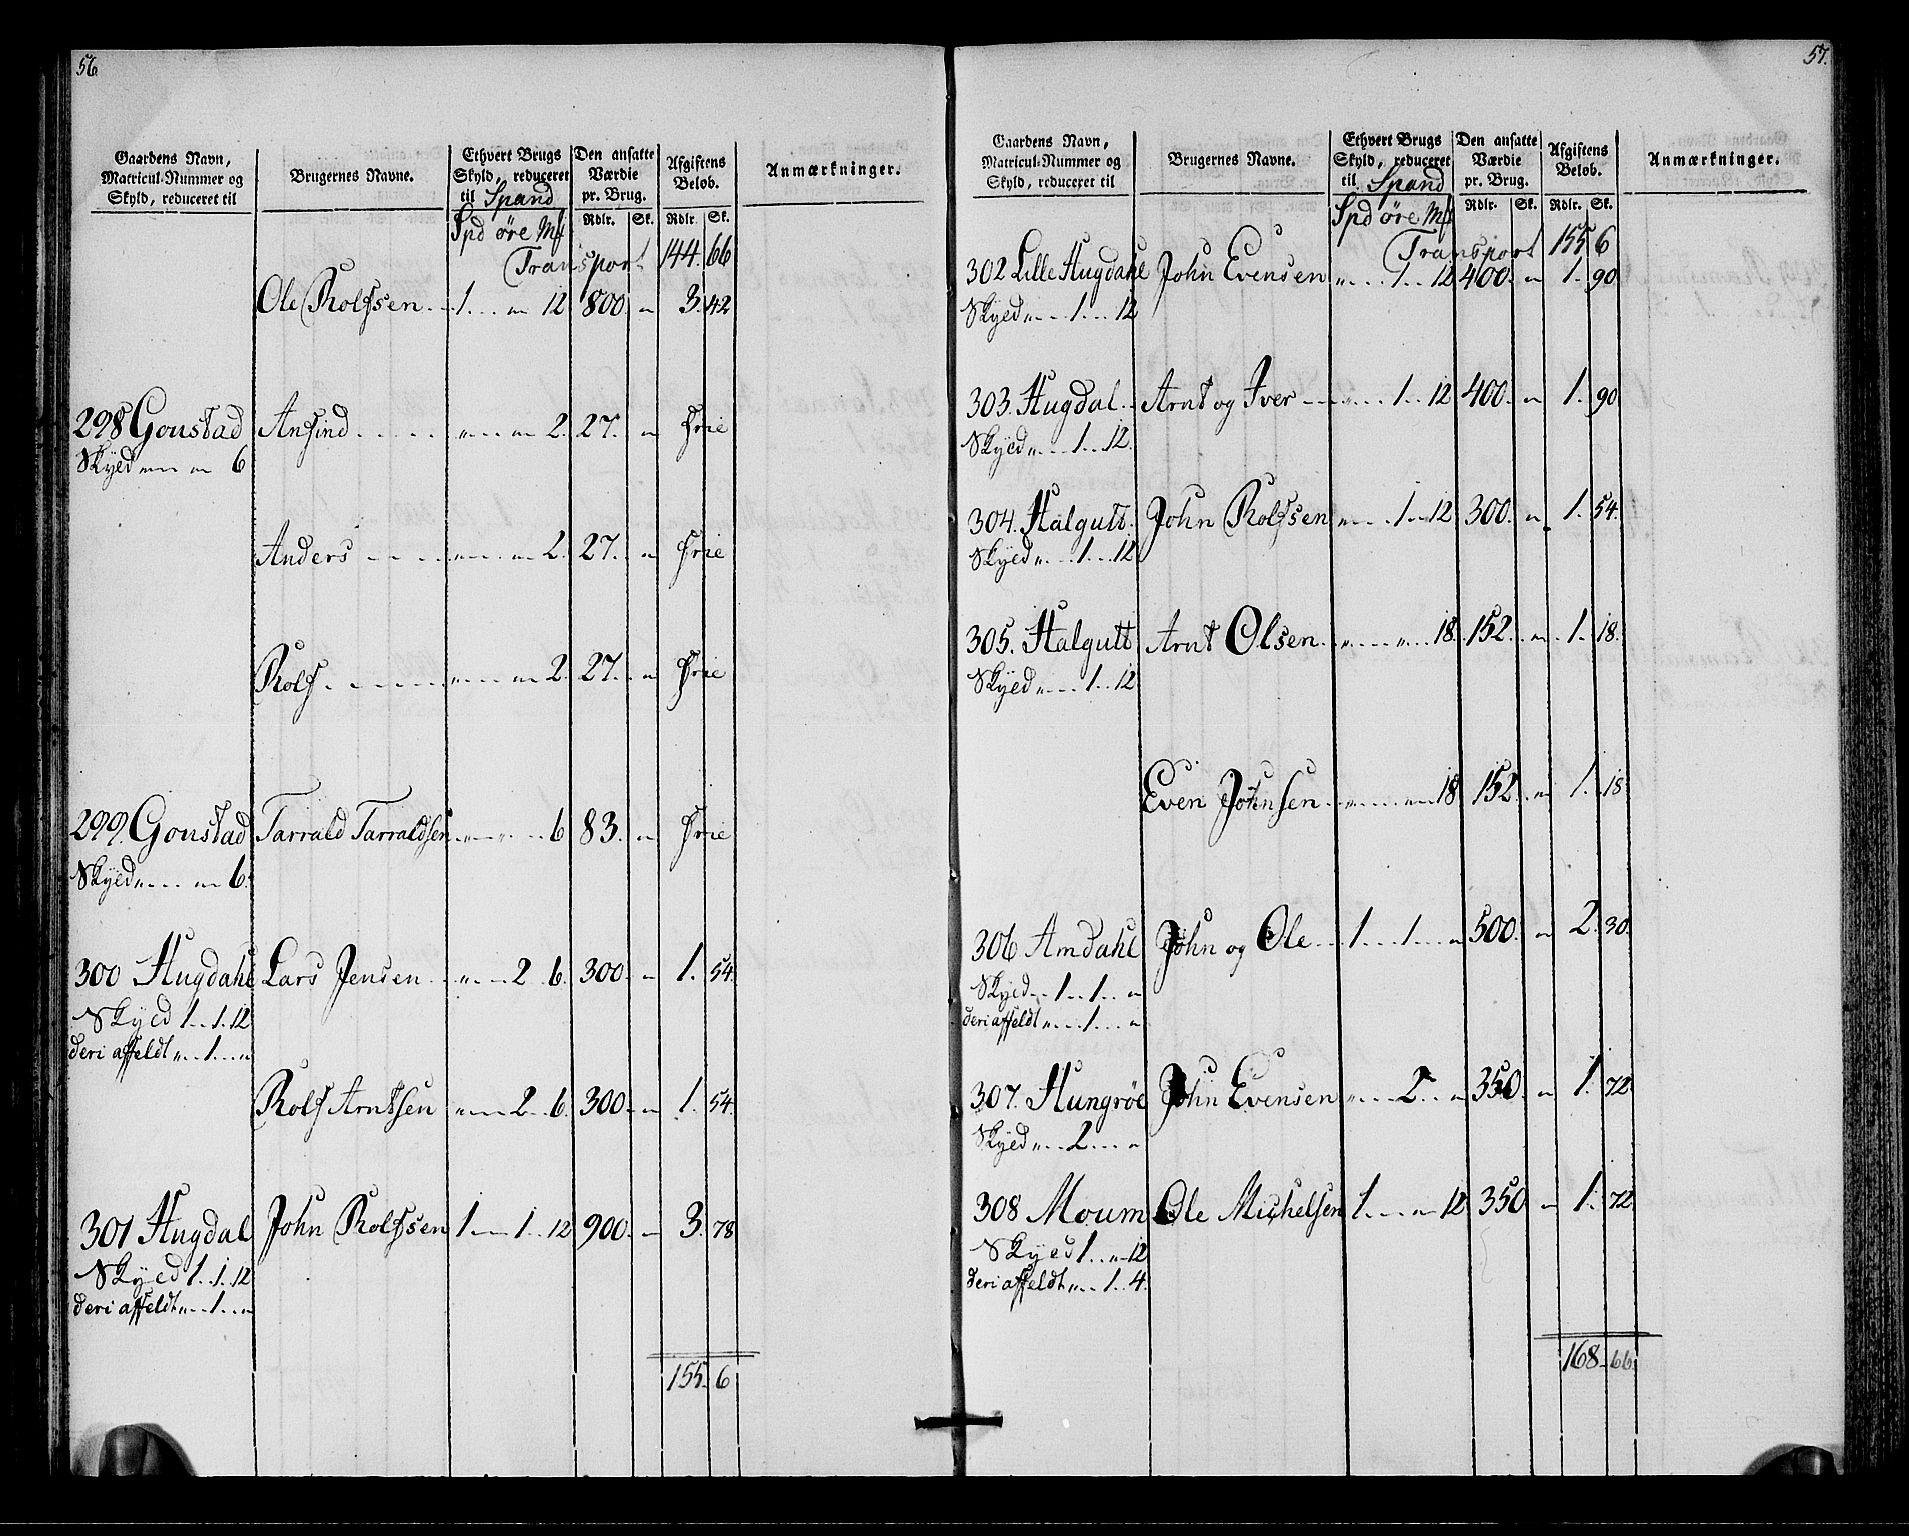 56
Gaardens Navn, Matricul-Nummer og Skyld, reduceret til | Brugernes Navne. | Ethvert Brugs Skyld, reduceret til Spand | Den ansatte Værdie pr. Brug. | Afgiftens Beløb. | Anmærkninger.
Spd øre Mf | Rdlr. Sk. | Rdlr. Sk.
Transport 144. 66
Ole Rolfsen 1 " 12 800 " 3. 42
298 Gonstad Ansind " " 2. 27. " Frie
Skyld " " 6
Anders " " 2. 27. " Frie
Rolf " " 2. 27. " Frie
299. Gonstad Tarrald Tarraldsen " " 6 83. " Frie
Skyld " " 6.
300 Hugdahl Lars Jensen " 2 6. 300. " 1. 54.
Skyld 1 1 12
deri affeldt " 1 "
Rolf Arntsen " 2 6. 300. " 1. 54.
301 Hugdal John Rolfsen 1 1 12 900. " 3. 78
Skyld 1 1 12
deri affeldt " 1 "
155. 6
57.
Gaardens Navn, Matricul-Nummer og Skyld, reduceret til | Brugernes Navne. | Ethvert Brugs Skyld, reduceret til Spand | Den ansatte Værdie pr. Brug. | Afgiftens Beløb. | Anmærkninger.
Spd øre Mf | Rdlr. Sk. | Rdlr. Sk.
Transport 155 6
302 Lille Hugdahl John Evensen " 1 12 400. " 1. 90
Skyld " 1 12
303. Hugdal John Arnt og Iver " 1 12 400. " 1. 90
Skyld " 1 12.
304. Halgutt. John Rolfsen " 1 12 300. " 1. 54.
Skyld " 1 12
305. Halgutt Arnt Olsen " " 18. 152. " 1. 18.
Skyld " 1 12
Even Johnsen " " 18 152. " 1. 18
306 Amdahl John og Ole 1 1 " 500. " 2. 30.
Skyld 1 1 "
deri affeldt " 1 "
307. Hungröe John Evensen " 2 " 350. " 1. 72
Skyld " 2 "
308 Moum Ole Michelsen 1 " 12 350 " 1. 72
Skyld 1 " 12
deri affeldt " 1 4.
168. 66